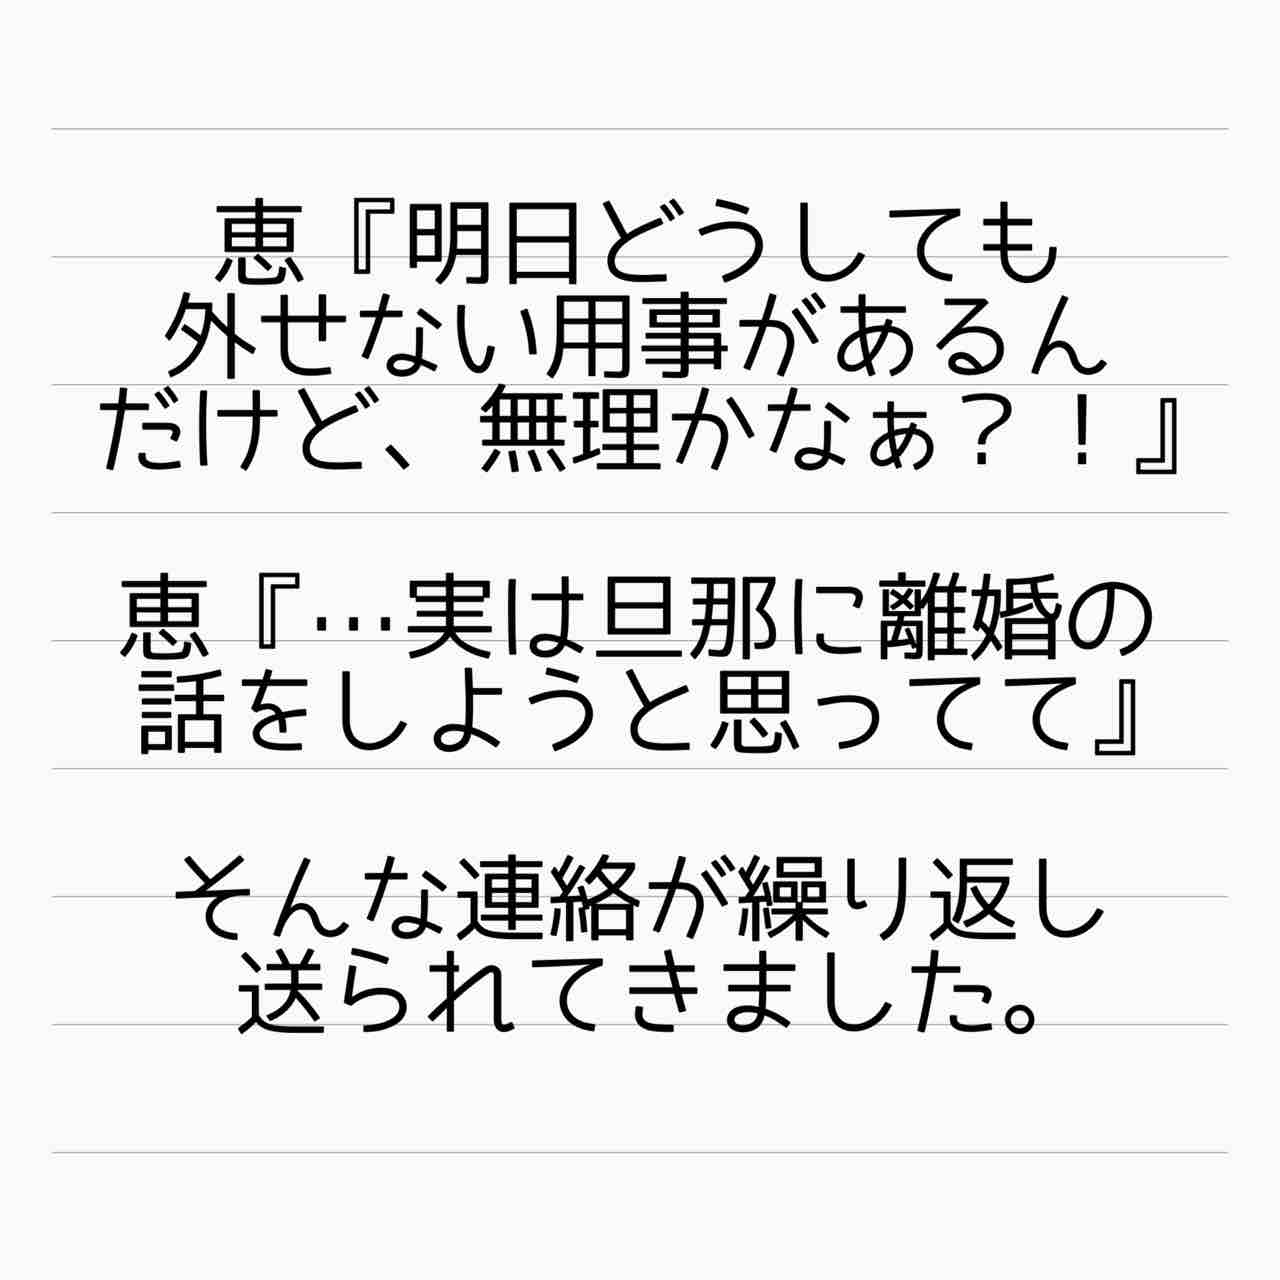 恵『明日どうしても
外せない用事があるん
だけど、無理かなぁ？！』
恵『…実は旦那に離婚の
話をしようと思ってて』
そんな連絡が繰り返し
送られてきました。